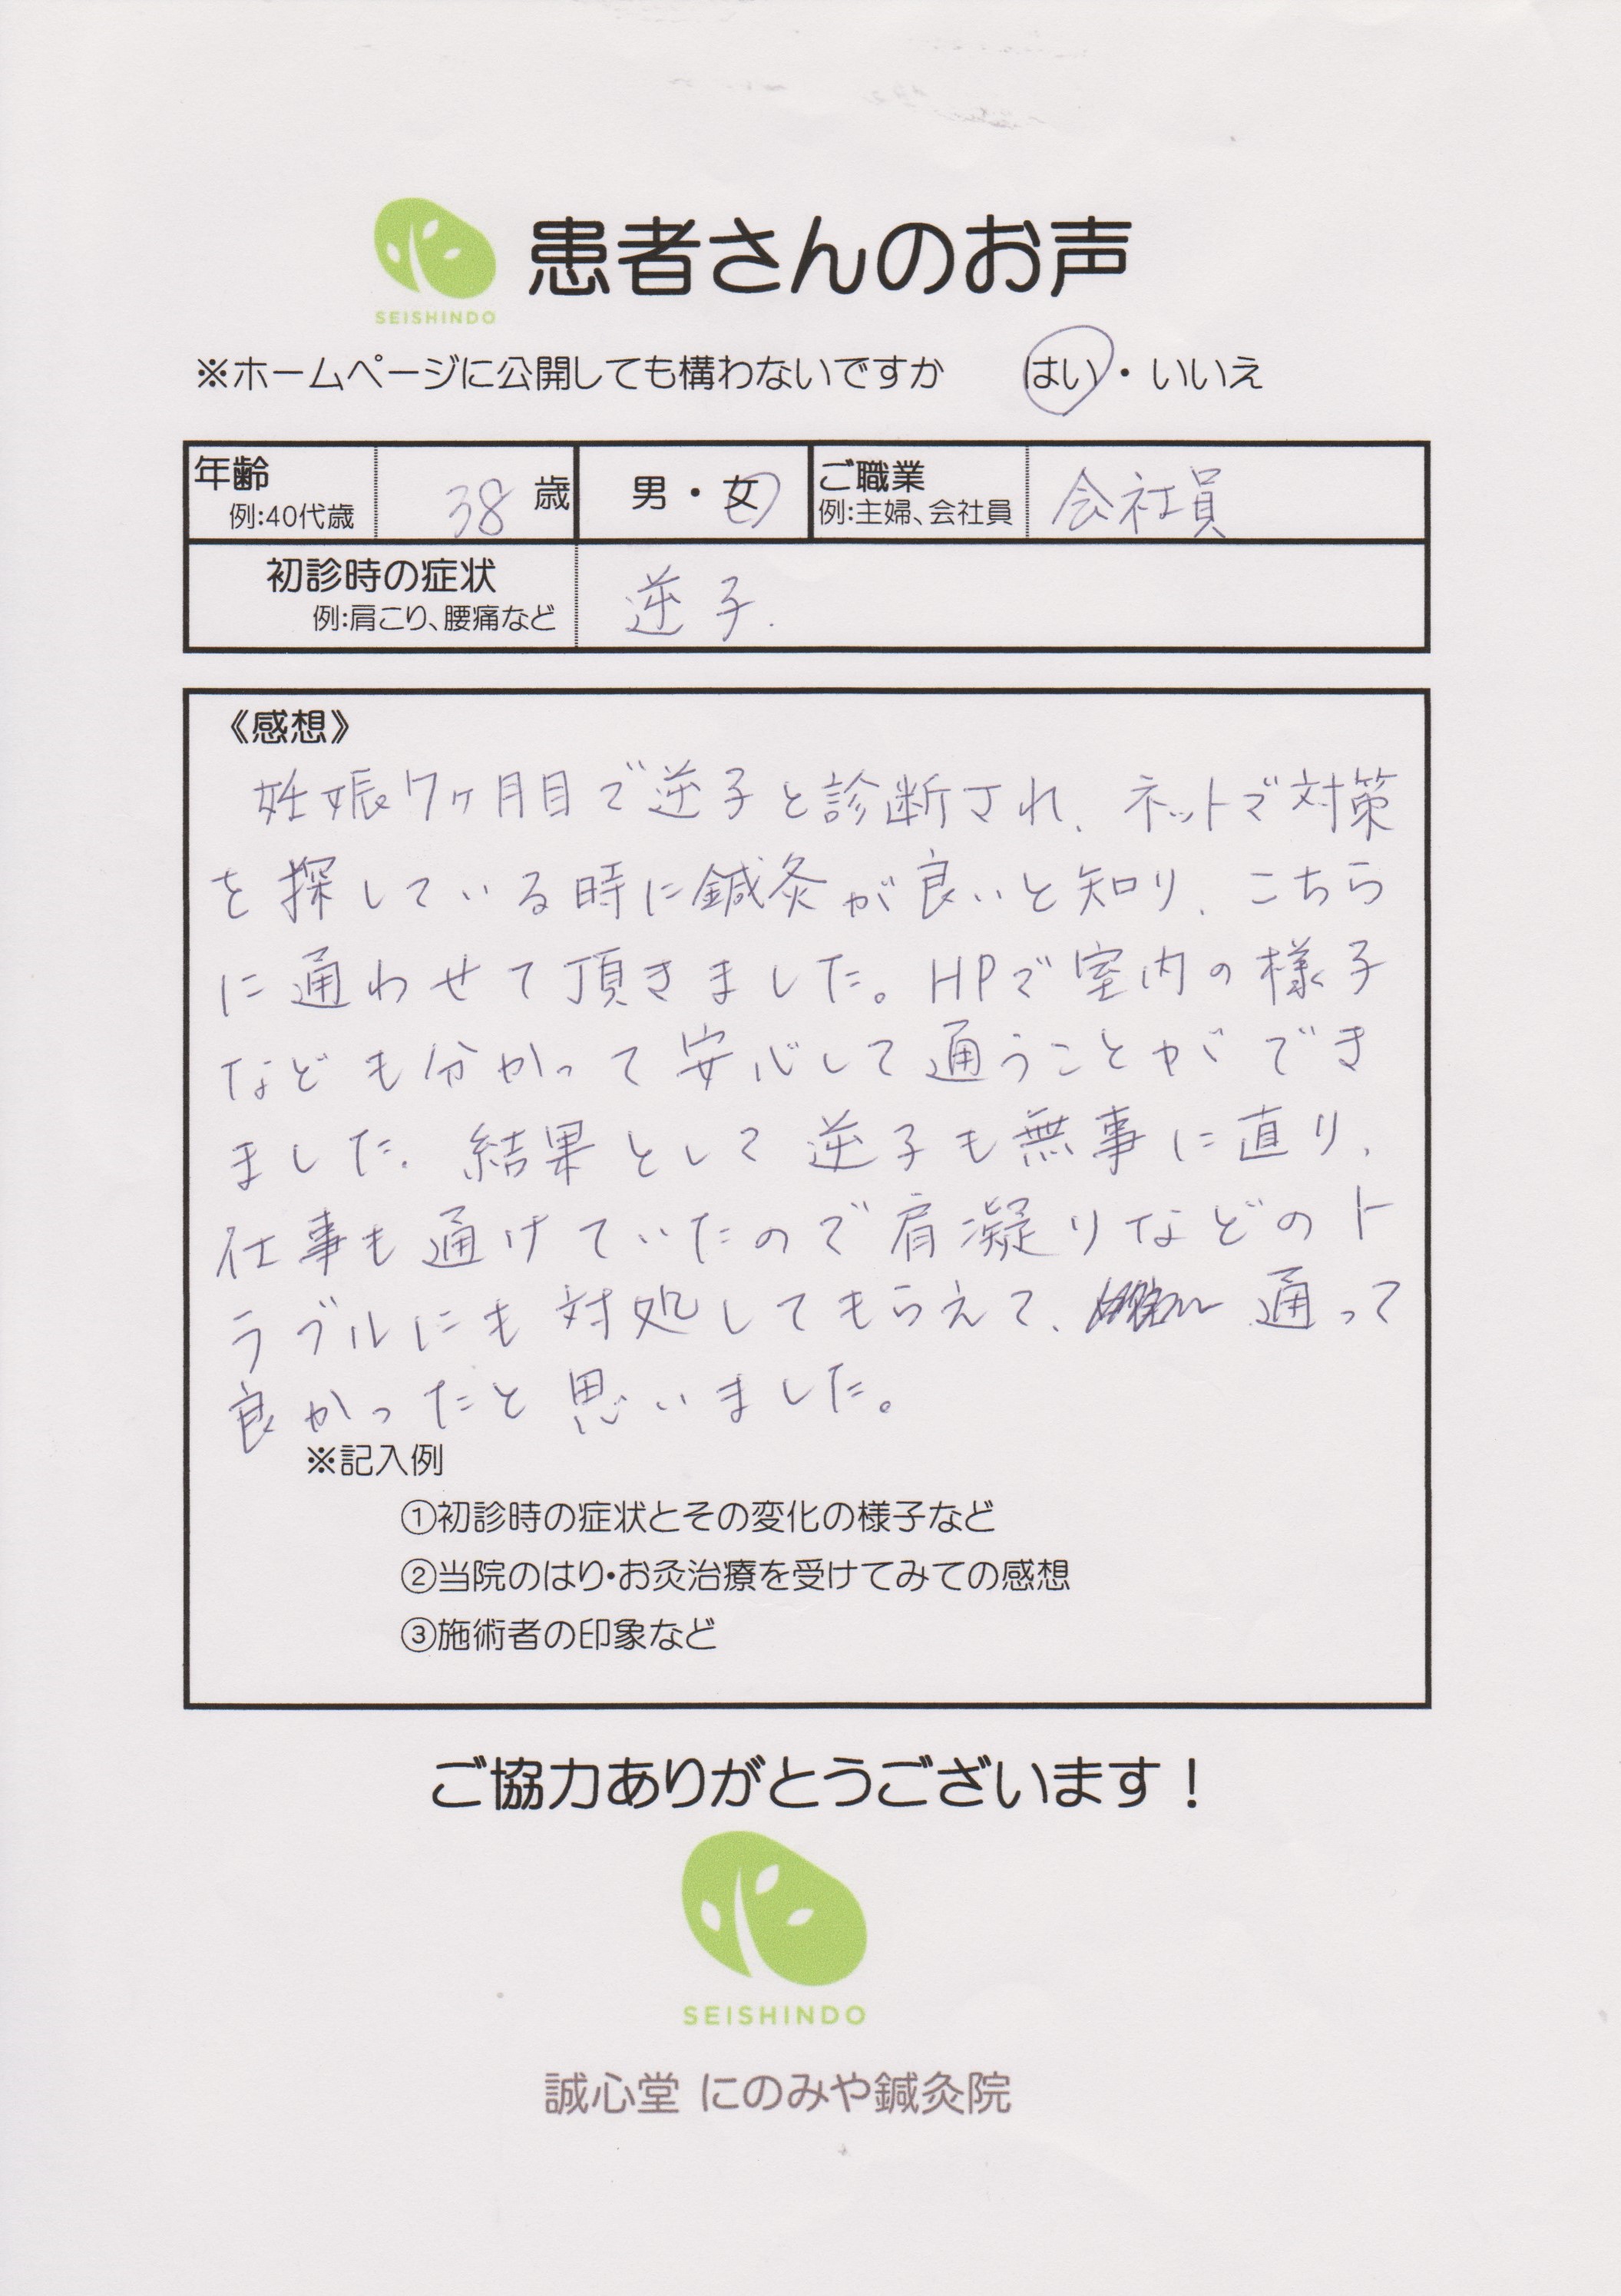 SEISHINDO
患者さんのお声
※ホームページに公開しても構わないですか はい・いいえ
年齢
例:40代歳
38 歳
男・女
ご職業
例:主婦、会社員
会社員
初診時の症状
例:肩こり、腰痛など
逆子.
《感想》
妊娠7ヶ月目で逆子と診断され、ネットで対策
を探している時に鍼灸が良いと知り、こちら
に通わせて頂きました。HPで室内の様子
なども分かって安心して通うことができ
ました。結果として逆子も無事に直り、
仕事も通けていたので肩凝りなどのト
ラブルにも対処してもらえて、通って
良かったと思いました。
※記入例
①初診時の症状とその変化の様子など
②当院のはり・お灸治療を受けてみての感想
③施術者の印象など
ご協力ありがとうございます!
SEISHINDO
誠心堂 にのみや鍼灸院